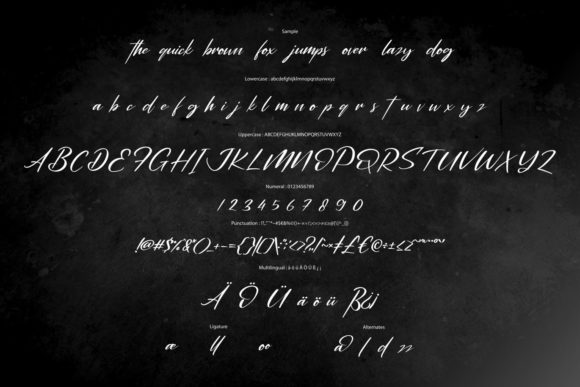 Sample
the quick brown fox jumps over lazy dog
Lowercase : abcdefghijklmnopqrstuvwxyz
a b c d e f g h i j k l m n o p q r s t u v w x y z
Uppercase : ABCDEFGHIJKLMNOPQRSTUVWXYZ
ABCDEFGHIJKLMNOPQRSTUVWXYZ
Numeral : 0123456789
1 2 3 4 5 6 7 8 9 0
Punctuation :
Multilingual : ä ö ü Ä Ö Ü ß ¿ ¡
Ä Ö Ü ä ö ü ß ¿ ¡
Ligature Alternates
æ ll oo a l d zz